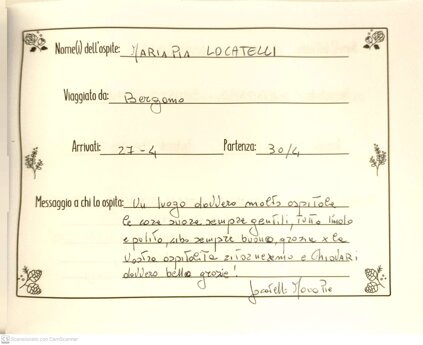 Nome(i) dell'ospite: MARIA PIA LOCATELLI
Viaggiato da: Bergamo
Arrivati: 27-4 Partenza: 30/4
Messaggio a chi lo ospita: Un luogo davvero molto ospitale
le care suore sempre gentili, tutto lindo
e pulito, cibo sempre buono, grazie x la
Vostra ospitalità ritorneremo e CHIAVARI
davvero bella grazie!
Locatelli Maria Pia
Scansionato con CamScanner